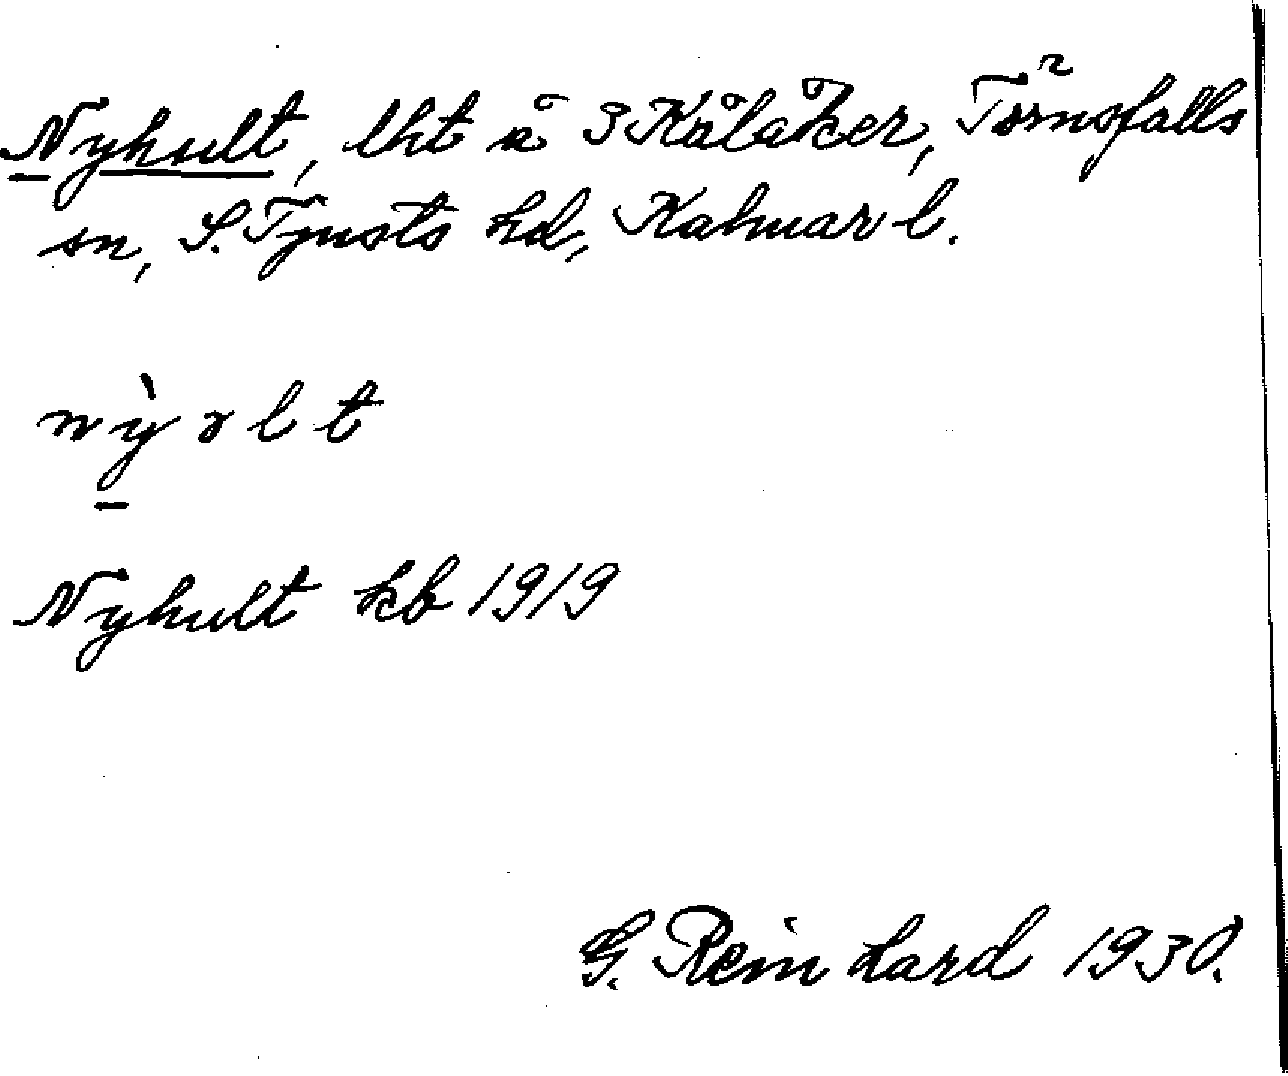 Nyhult, lht å 3 Kålåker, Törnsfalls
sn, S. Tjusts hd, Kalmar l.
nỳ ɤ l t
Nyhult kb 1919
G. Reinhard 1930.